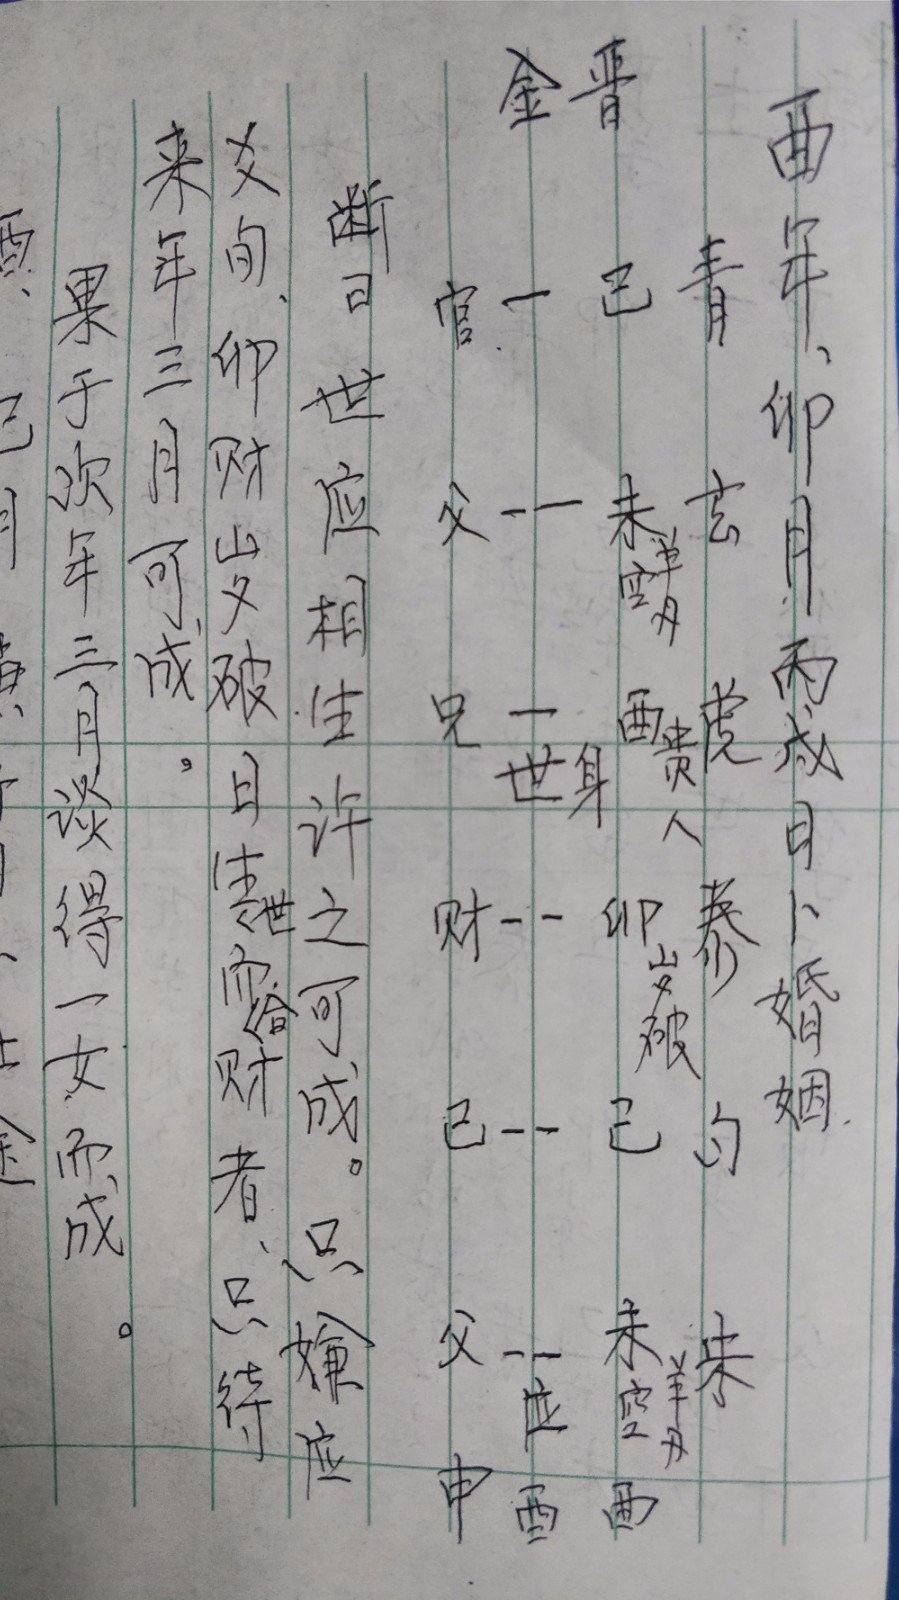 酉年、卯月丙戌日卜婚姻.
青 玄 虎 秦 勾 朱
晋 巳 未羊刃空 酉贵人 卯岁破 巳 未羊刃空 酉
金 一 -- 一世身 -- -- --应 酉
官 父 兄 财 已 父 申
断曰世应相生许之可成。只嫌应
爻旬、卯财岁破日生世而合财者、只待
来年三月可成。
果于次年三月谈得一女而成。